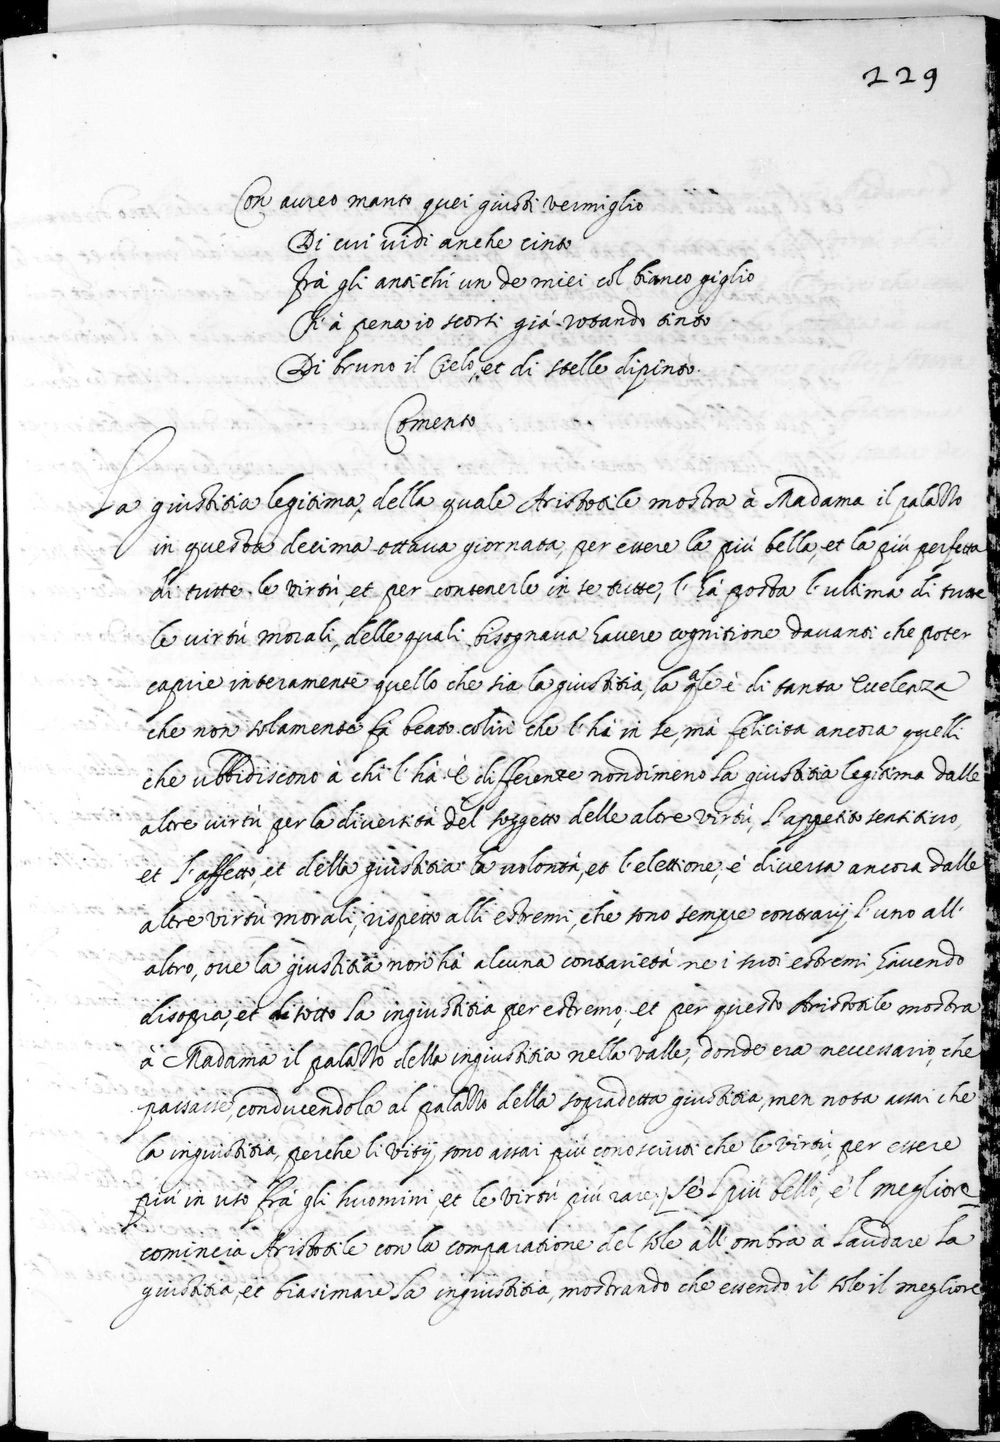 229
Con aureo manto quei giusti vermiglio
Di cui vidi anche cinto
Frà gli antichi un de miei col bianco giglio
Ch'à pena io scorsi già rotando tinto
Di bruno il Cielo, et di stelle dipinto.
Comento
La giustitia legitima, della quale Aristotile mostra à Madama il palazzo
in questa decima ottava giornata, per essere la più bella, et la più perfetta
di tutte le virtù, et per contenerle in se tutte, l'hà posta l'ultima di tutte
le virtù morali, delle quali bisognava havere cognitione davanti che poter
capire interamente quello che sia la giustitia, la qale è di tanta Eccelenza
che non solamente fà beato colui che l'hà in se, mà felicita ancora quelli
che ubbidiscono à chi l'hà. È differente nondimeno la giustitia legitima dalle
altre virtù per la diversità del soggetto delle altre virtù, l'appetito sensitivo,
et l'affetto, et della giustitia la volontà, et l'elettione, è diversa ancora dalle
altre virtù morali, rispetto alli estremi, che sono sempre contrarij l'uno all'
altro, ove la giustitia non hà alcuna contarietà ne i suoi estremi havendo
disopra, et di sotto la ingiustitia per estremo, et per questo Aristotile mostra
à Madama il palazzo della ingiustitia nella valle, donde era neccessario, che
passasse, conducendola al palazzo della sopradetta giustitia, men nota assai che
la ingiustitia, perche li vitij sono assai più conosciuti che le virtù, per essere
più in uso frà gli huomini, et le virtù più rare. Se'l più bello, e'l megliore
comincia Aristotile con la comparatione del sole all'ombra à laudare la
giustitia, et biasimare la ingiustitia, mostrando che essendo il sole il megliore